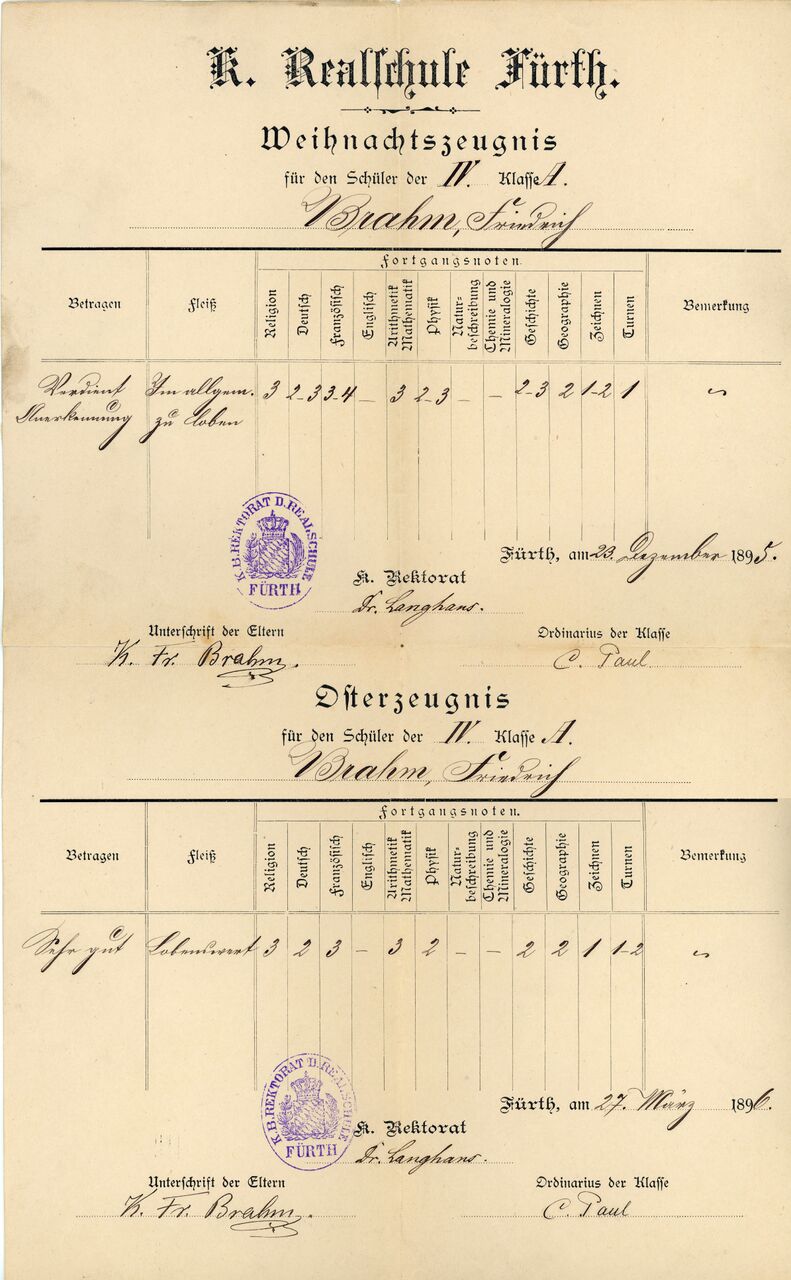 K. Realschule Fürth.
Weihnachtszeugnis
für den Schüler der IV. Klasse A.
Brahm, Friedrich
Fortgangsnoten.
Betragen Fleiß Religion Deutsch Französisch Englisch Arithmetik Mathematik Physik Natur-beschreibung Chemie und Mineralogie Geschichte Geographie Zeichnen Turnen Bemerkung
Verdient Im allgem. 3 2-3 3-4 – 3 2-3 – – 2-3 2 1-2 1 ~
Anerkennung zu loben
K.B. REKTORAT D. REALSCHULE
FÜRTH
Fürth, am 23. Dezember 1895.
K. Rektorat
Dr. Langhans.
Unterschrift der Eltern Ordinarius der Klasse
K. Fr. Brahm. C. Paul
Osterzeugnis
für den Schüler der IV. Klasse A.
Brahm, Friedrich
Fortgangsnoten.
Betragen Fleiß Religion Deutsch Französisch Englisch Arithmetik Mathematik Physik Natur-beschreibung Chemie und Mineralogie Geschichte Geographie Zeichnen Turnen Bemerkung
Sehr gut Lobenswert 3 2 3 – 3 2 – – 2 2 1 1-2 ~
K.B. REKTORAT D. REALSCHULE
FÜRTH
Fürth, am 27. März 1896.
K. Rektorat
Dr. Langhans.
Unterschrift der Eltern Ordinarius der Klasse
K. Fr. Brahm. C. Paul